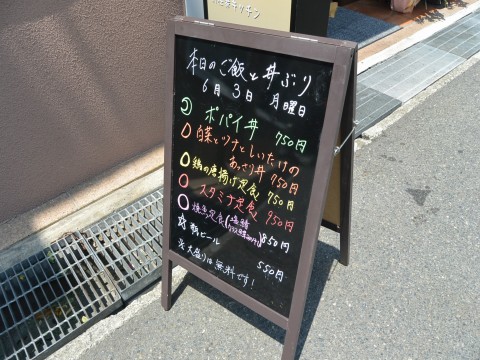 キッチン
本日のご飯と丼ぶり
6月3日 月曜日
ポパイ丼 750円
白菜とツナとしいたけの
あっさり丼 750円
鶏の唐揚げ定食 750円
スタミナ定食 950円
焼魚定食 850円
ビール 550円
※大盛りは無料です!